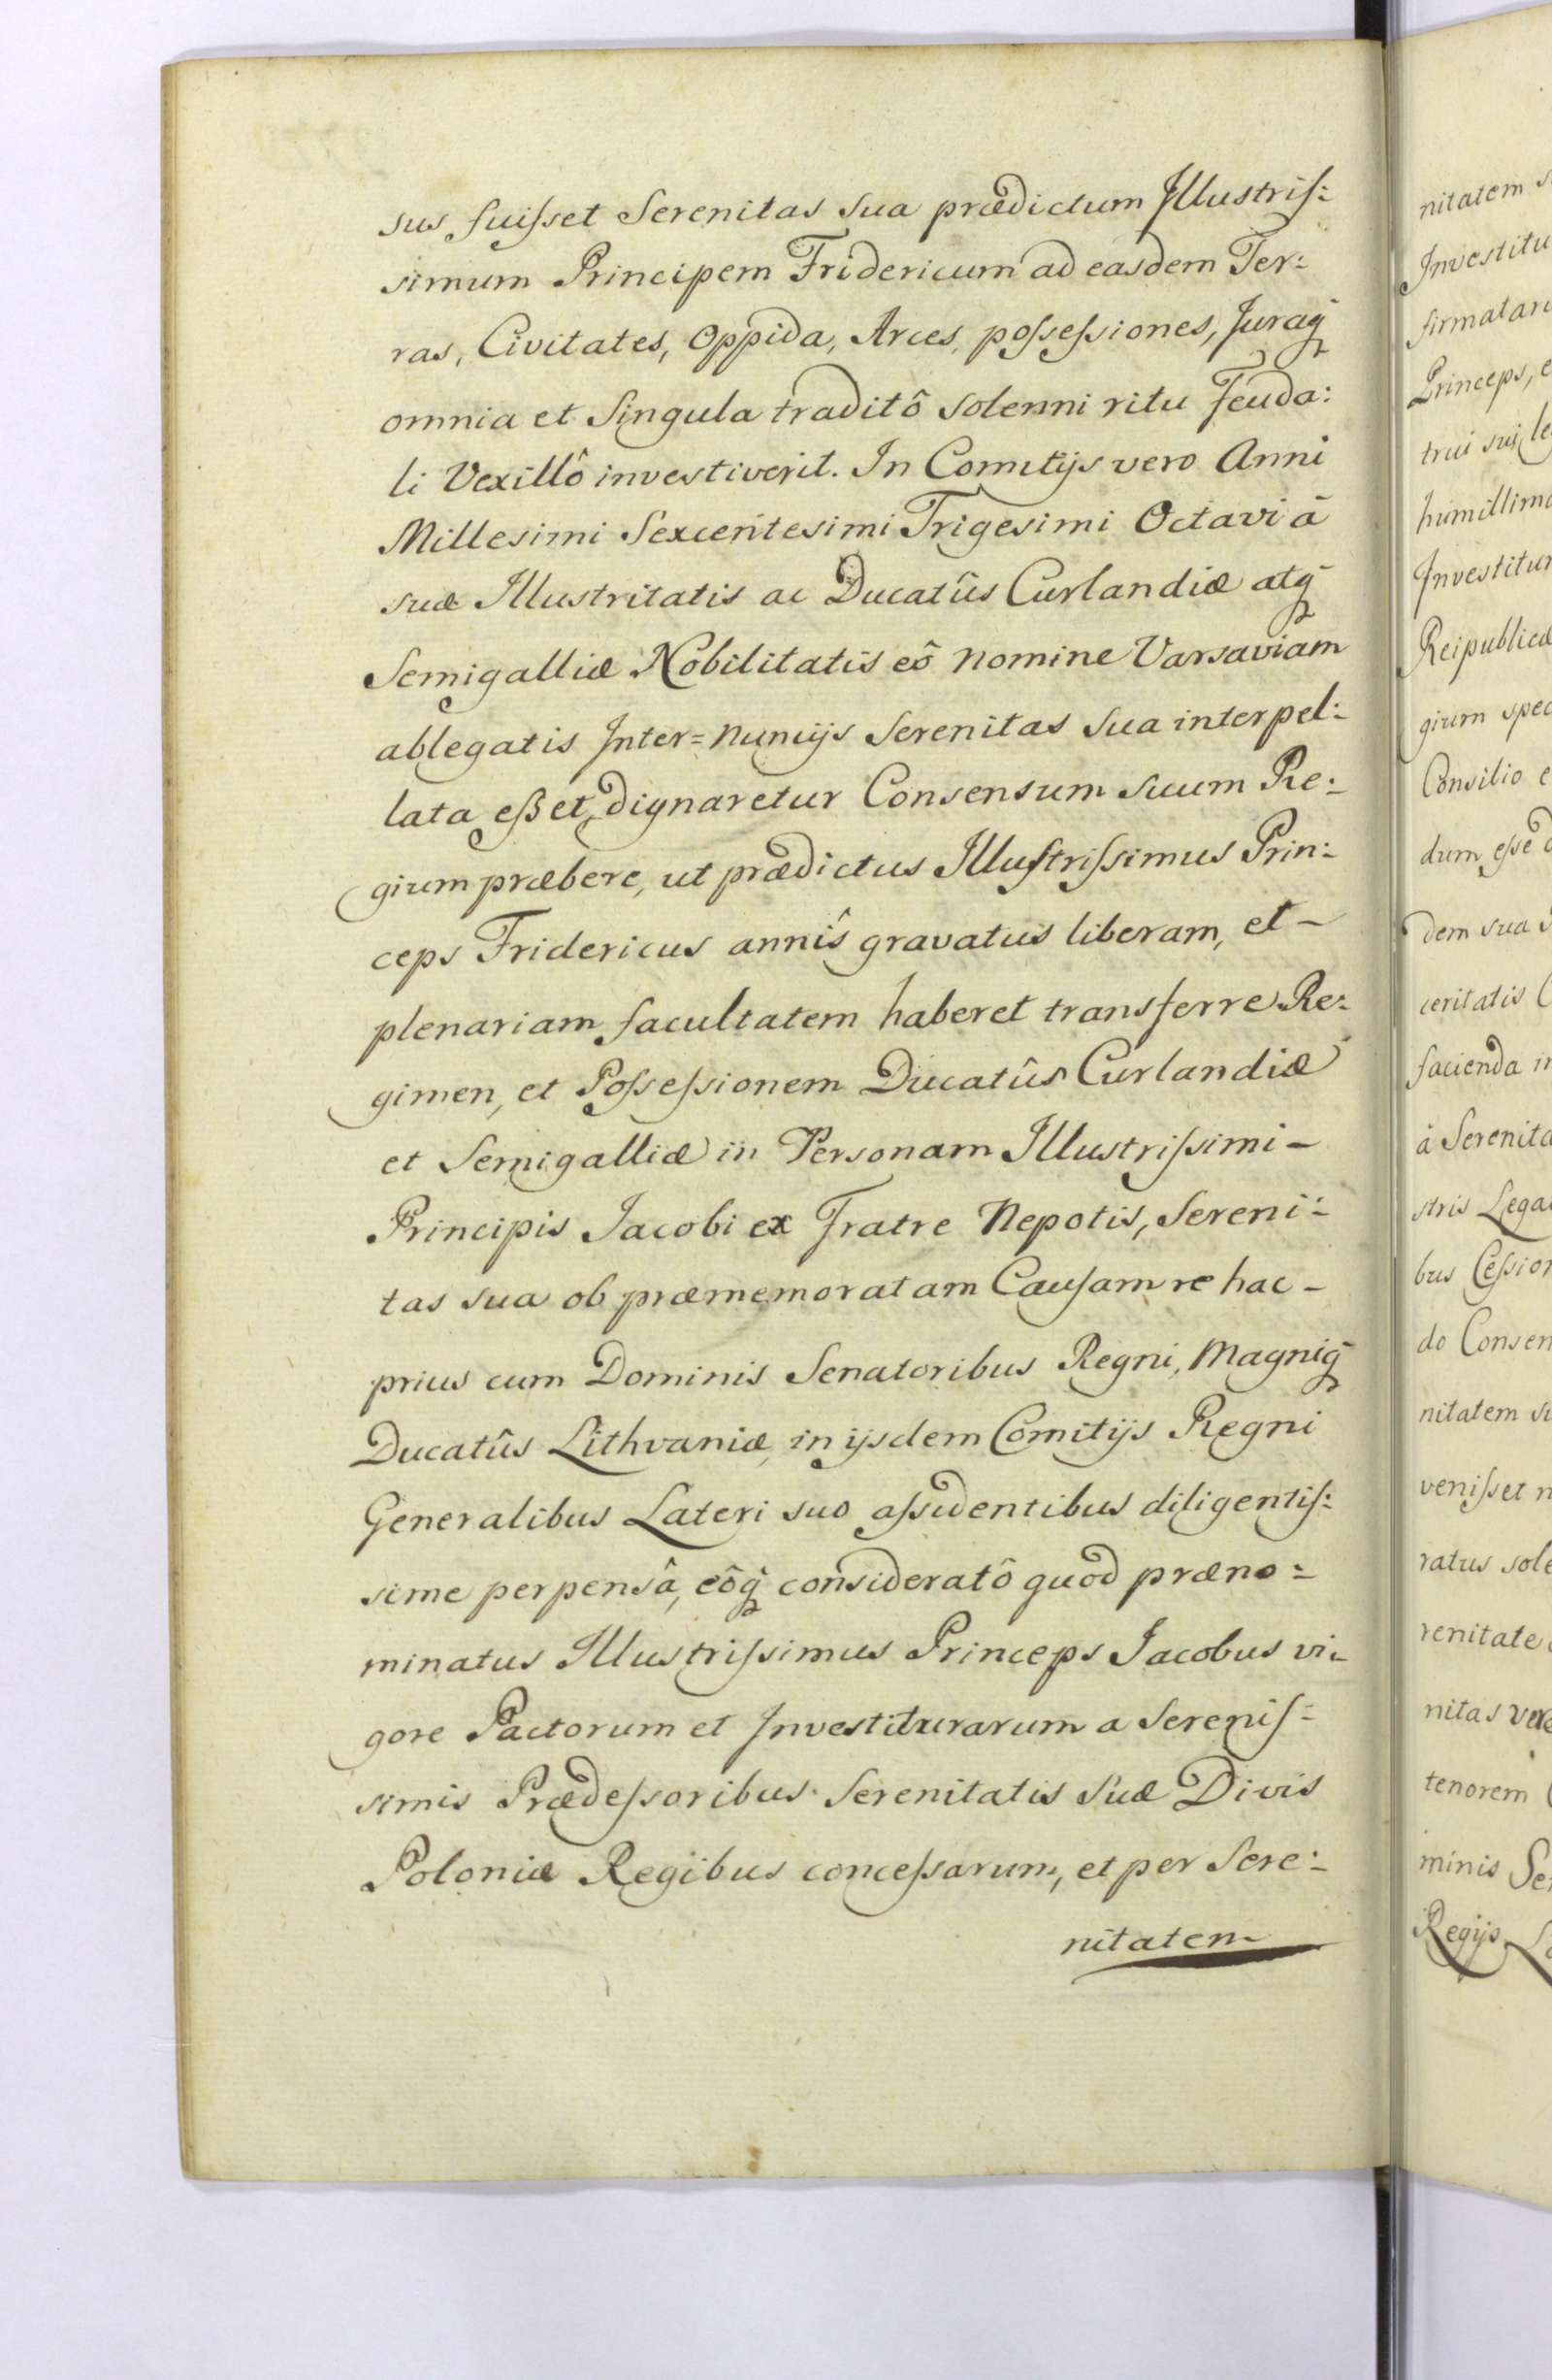 sus fuiſset Serenitas Sua prædictum Illustriſ:
simum Principem Fridericum ad easdem Ter:
ras, Civitates, Oppida, Arces, poſseſsiones, Juraq̃
omnia et Singula traditô solenni ritu Feuda:
li Vexillô investiverit. In Comitijs vero Anni
Millesimi Sexcentesimi Trigesimi Octavi â
suæ Illustritatis ac Ducatûs Curlandiæ atq̃
Semigalliæ Nobilitatis eô nomine Varsaviam
ablegatis Inter=nuncijs Serenitas Sua interpel:
lata eſset, dignaretur Consensum suum Re:
gium præbere, ut prædictus Illuſtriſsimus Prin:
ceps Fridericus annîs gravatus liberam, et –
plenariam facultatem haberet transferre Re:
gimen, et Poſseſsionem Ducatûs Curlandiæ
et Semigalliæ in Personam Illustriſsimi –
Principis Jacobi ex Fratre Nepotis, Sereni:
tas sua ob præmemoratam Cauſam re hac –
prius cum Dominis Senatoribus Regni, Magniq̃
Ducatûs Lithvaniæ, in ijsdem Comitijs Regni
Generalibus Lateri suo aſsidentibus diligentiſ:
sime perpensâ, eôq̃ consideratô quod præno:
minatus Illustriſsimus Princeps Jacobus vi:
gore Pactorum et Investiturarum a Sereniſ:
simis Prædeſsoribus Serenitatis Suæ Divis
Poloniæ Regibus conceſsarum, et per Sere:
nitatem
nitatem
Investitu
firmatam
Princeps, e
trui sui le
humillima
Investitur
Reipublicæ
gium spec
Consilio e
dum eſse d
dem sua
ceritatis C
facienda in
à Serenita
stris Lega
bus Ceſsion
do Consen
nitatem su
veniſset n
ratus sole
renitate
nitas vero
tenorem
minis Se
Regijs